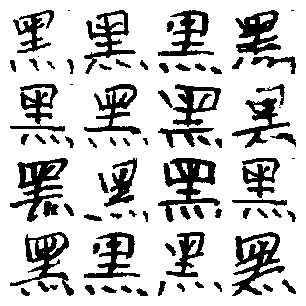 黑黑黑黑
黑黑黑黑
黑黑黑黑
黑黑黑黑